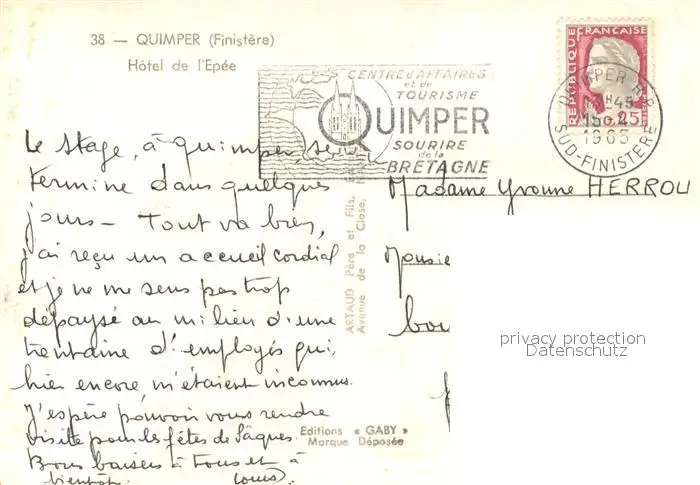 38 — QUIMPER (Finistère)
Hôtel de l'Epée
CENTRE d'AFFAIRES
et de
TOURISME
QUIMPER
SOURIRE
de la
BRETAGNE
REPUBLIQUE FRANÇAISE
0,25
QUIMPER R.P.
15-2
1965
SUD-FINISTERE
Le stage, à Quimper, se
termine dans quelques
jours - Tout va bien,
j'ai reçu un accueil cordial
et je ne me sens pas trop
dépaysé au milieu d'une
trentaine d'employés qui,
hier encore, m'étaient inconnus.
J'espère pouvoir vous rendre
visite pour les fêtes de Pâques.
Bons baisers à tous et à
bientôt. Louis
ARTAUD Père et Fils,
Avenue de la Close,
Editions « GABY »
Marque Déposée
Madame Yvonne HERROU
Monsie
privacy protection
Datenschutz